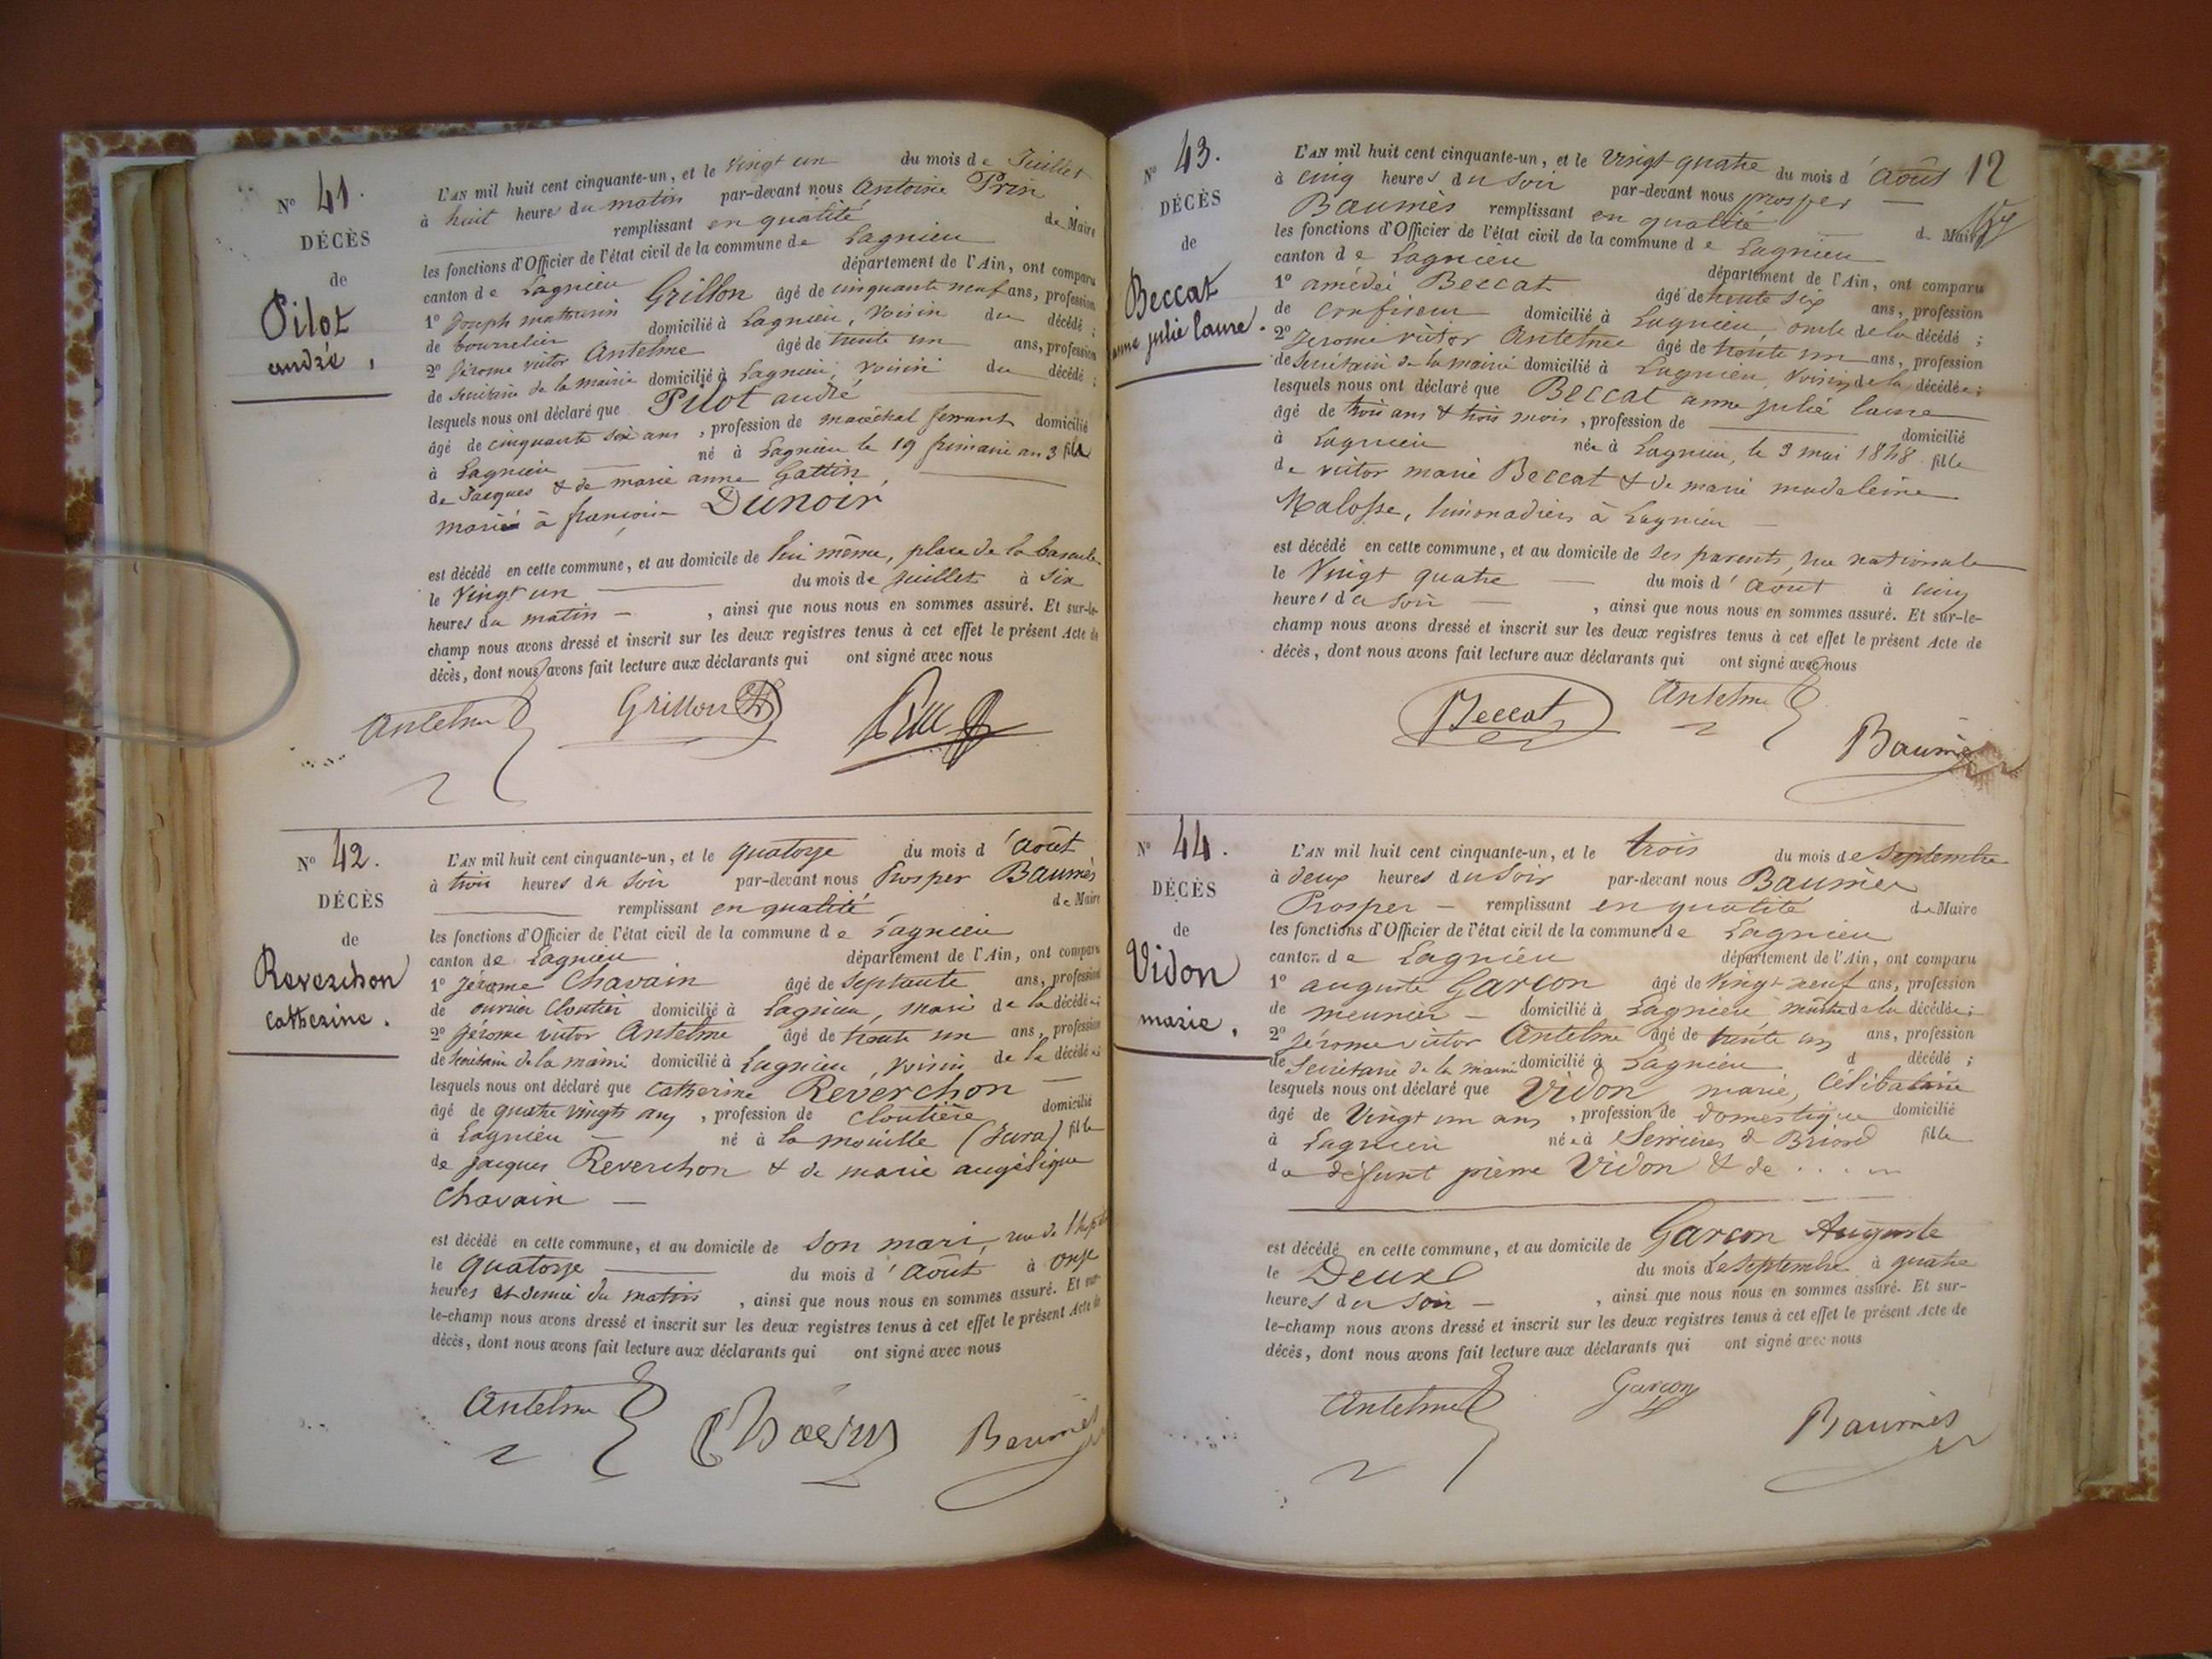 N° 41.
DÉCÈS
de
Pilot
andré,
L'AN mil huit cent cinquante-un, et le Vingt un du mois de Juillet
à huit heures du matin par-devant nous Antoine Prin
remplissant en qualité de Maire
les fonctions d'Officier de l'état civil de la commune de Lagnieu
canton de Lagnieu département de l'Ain, ont comparu
1° Joseph mathurin Grillon âgé de cinquante neuf ans, profession
de bourrelier domicilié à Lagnieu, voisin du décédé ;
2° Jérome victor Antelme âgé de trente un ans, profession
de Secrétaire de la mairie domicilié à Lagnieu, voisin du décédé ;
lesquels nous ont déclaré que Pilot andré
âgé de cinquante six ans, profession de maréchal ferrant domicilié
à Lagnieu né à Lagnieu le 19 frimaire an 3 fils
de Jacques & de marie anne Gattin,
marié à françoise Dunoir
est décédé en cette commune, et au domicile de lui même, place de la bascule
le Vingt un du mois de juillet à six
heures du matin , ainsi que nous nous en sommes assuré. Et sur-le-
champ nous avons dressé et inscrit sur les deux registres tenus à cet effet le présent Acte de
décès, dont nous avons fait lecture aux déclarants qui ont signé avec nous
Antelme Grillon
N° 42.
DÉCÈS
de
Reverchon
Catherine.
L'AN mil huit cent cinquante-un, et le quatorze du mois d'Août
à trois heures du soir par-devant nous Prosper Baumès
remplissant en qualité de Maire
les fonctions d'Officier de l'état civil de la commune de Lagnieu
canton de Lagnieu département de l'Ain, ont comparu
1° Jérome Chavain âgé de septante ans, profession
de ouvrier Cloutier domicilié à Lagnieu, mari de la décédée ;
2° Jérome victor Antelme âgé de trente un ans, profession
de Secrétaire de la mairie domicilié à Lagnieu, voisin de la décédée ;
lesquels nous ont déclaré que Catherine Reverchon
âgé de quatre vingts ans, profession de Cloutière domicilié
à Lagnieu né à la mouille (Jura) fille
de jacques Reverchon & de marie angélique
Chavain
est décédé en cette commune, et au domicile de son mari, rue de
le quatorze du mois d'Août à onze
heures et demie du matin , ainsi que nous nous en sommes assuré. Et sur-
le-champ nous avons dressé et inscrit sur les deux registres tenus à cet effet le présent Acte de
décès, dont nous avons fait lecture aux déclarants qui ont signé avec nous
Antelme Baumès
N° 43.
DÉCÈS
de
Beccat
anne julie laure.
12
L'AN mil huit cent cinquante-un, et le Vingt quatre du mois d'Août
à cinq heures du soir par-devant nous prosper
Baumès remplissant en qualité de Maire
les fonctions d'Officier de l'état civil de la commune de Lagnieu
canton de Lagnieu département de l'Ain, ont comparu
1° amédée Beccat âgé de trente six ans, profession
de confiseur domicilié à Lagnieu, oncle de la décédé ;
2° Jerome victor Antelme âgé de trente un ans, profession
de Secrétaire de la mairie domicilié à Lagnieu, voisin de la décédée ;
lesquels nous ont déclaré que Beccat anne julie laure
âgé de trois ans & trois mois, profession de domicilié
à Lagnieu née à Lagnieu, le 3 mai 1848 fille
de victor marie Beccat & de marie madeleine
Malosse, limonadiers à Lagnieu
est décédé en cette commune, et au domicile de ses parents, rue nationale
le Vingt quatre du mois d'Aout à cinq
heures du soir , ainsi que nous nous en sommes assuré. Et sur-le-
champ nous avons dressé et inscrit sur les deux registres tenus à cet effet le présent Acte de
décès, dont nous avons fait lecture aux déclarants qui ont signé avec nous
Beccat Antelme
Baumès
N° 44.
DÉCÈS
de
Vidon
marie.
L'AN mil huit cent cinquante-un, et le trois du mois de Septembre
à deux heures du soir par-devant nous Baumès
Prosper remplissant en qualité de Maire
les fonctions d'Officier de l'état civil de la commune de Lagnieu
canton de Lagnieu département de l'Ain, ont comparu
1° auguste Garcon âgé de Vingt neuf ans, profession
de meunier domicilié à Lagnieu, maître de la décédée ;
2° Jérome victor Antelme âgé de trente un ans, profession
de Secrétaire de la mairie domicilié à Lagnieu d décédé ;
lesquels nous ont déclaré que Vidon marie, Célibataire
âgé de Vingt un ans, profession de domestique domicilié
à Lagnieu née à Serrières de Briord fille
de défunt pierre Vidon & de ....
est décédé en cette commune, et au domicile de Garcon Auguste
le Deux du mois de Septembre à quatre
heures du soir , ainsi que nous nous en sommes assuré. Et sur-
le-champ nous avons dressé et inscrit sur les deux registres tenus à cet effet le présent Acte de
décès, dont nous avons fait lecture aux déclarants qui ont signé avec nous
Antelme Garcon
Baumès